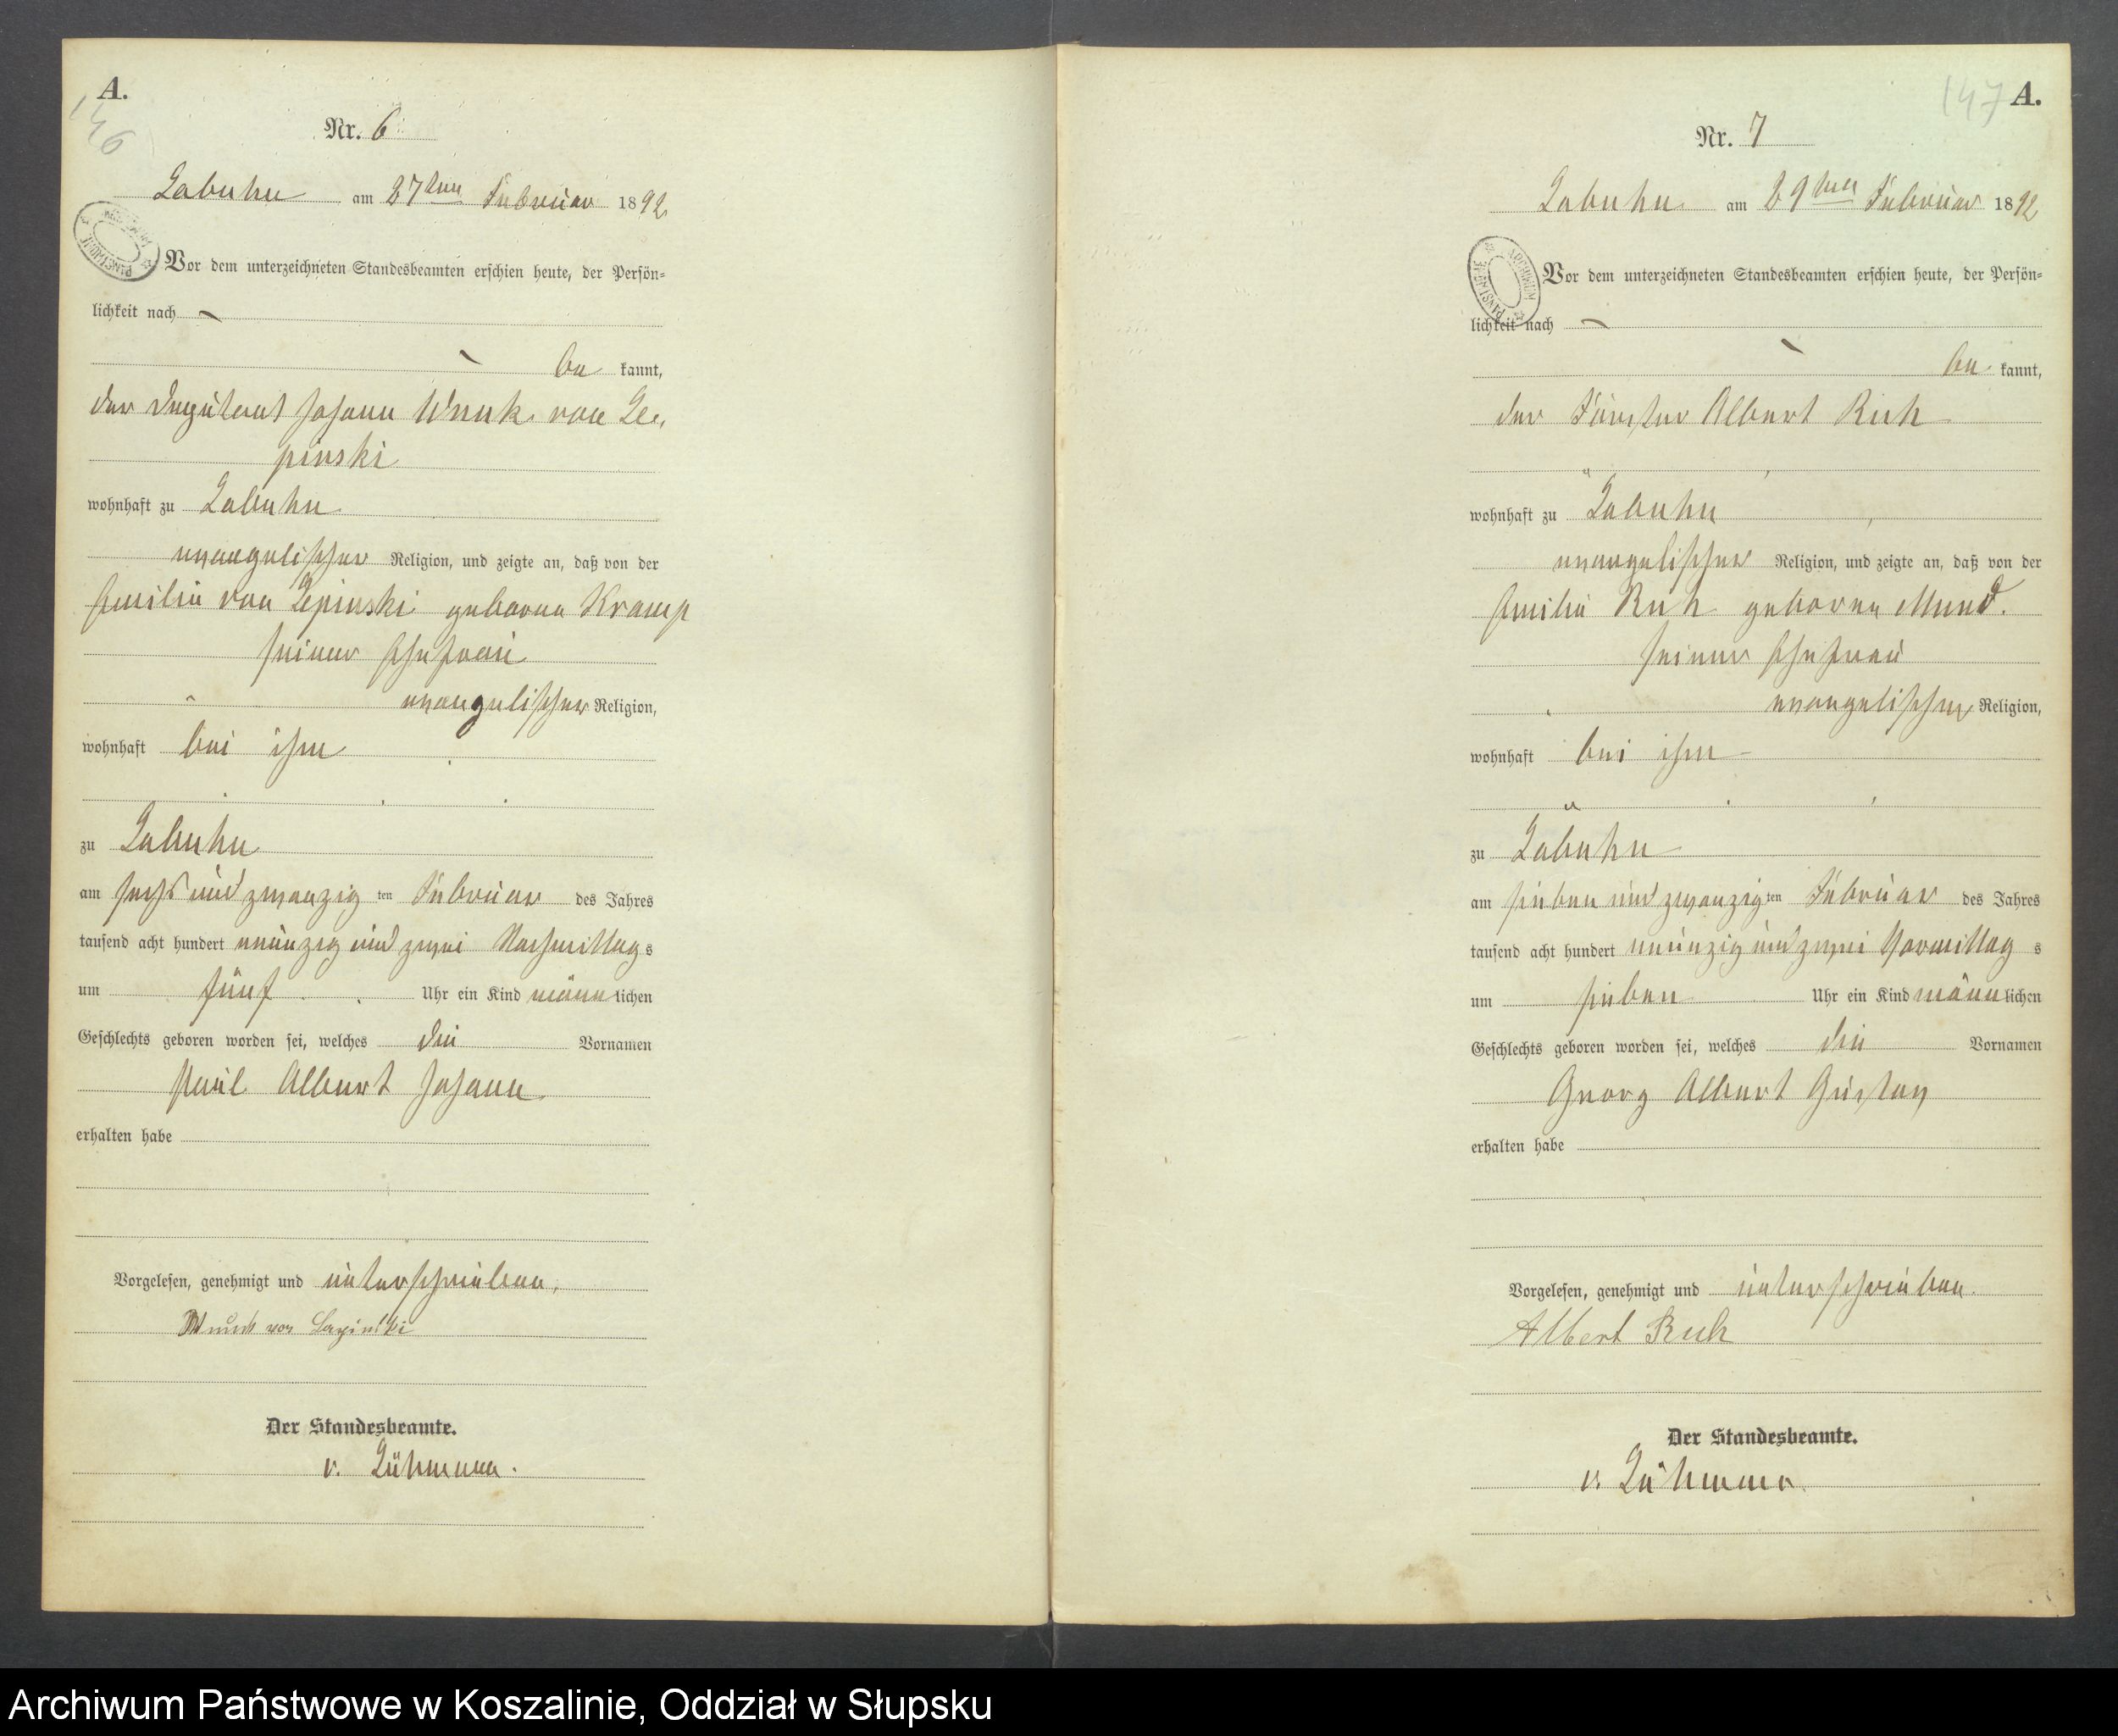 A.
146
Nr. 6
Labuhn am 27ten Februar 1892
Vor dem unterzeichneten Standesbeamten erschien heute, der Persön=
lichkeit nach
be kannt,
der Deputant Johann Wnuk von Le,
pinski
wohnhaft zu Labuhn
evangelischer Religion, und zeigte an, daß von der
Emilie von Lepinski geborne Kramp
seiner Ehefrau
evangelischer Religion,
wohnhaft bei ihm
zu Labuhn
am sechs und zwanzig ten Februar des Jahres
tausend acht hundert neunzig und zwei Nachmittags
um fünf Uhr ein Kind männlichen
Geschlechts geboren worden sei, welches die Vornamen
Paul Albert Johann
erhalten habe
Vorgelesen, genehmigt und unterschrieben,
Wnuck von Lapinski
Der Standesbeamte.
v. Lühmann.
147 A.
Nr. 7
Labuhn am 29ten Februar 1892
ARCHIWUM PAŃSTWOWE
Vor dem unterzeichneten Standesbeamten erschien heute, der Persön=
lichkeit nach
be kannt,
der Förster Albert Ruh
wohnhaft zu Labuhn
evangelischer Religion, und zeigte an, daß von der
Emilie Ruh geborne Mund.
seiner Ehefrau
evangelischer Religion,
wohnhaft bei ihm
zu Labuhn
am sieben und zwanzigten Februar des Jahres
tausend acht hundert neunzig und zwei Vormittag s
um sieben Uhr ein Kind männlichen
Geschlechts geboren worden sei, welches die Vornamen
Georg Albert Gustav
erhalten habe
Vorgelesen, genehmigt und unterschrieben.
Albert Ruh
Der Standesbeamte.
v. Lühmann
Archiwum Państwowe w Koszalinie, Oddział w Słupsku